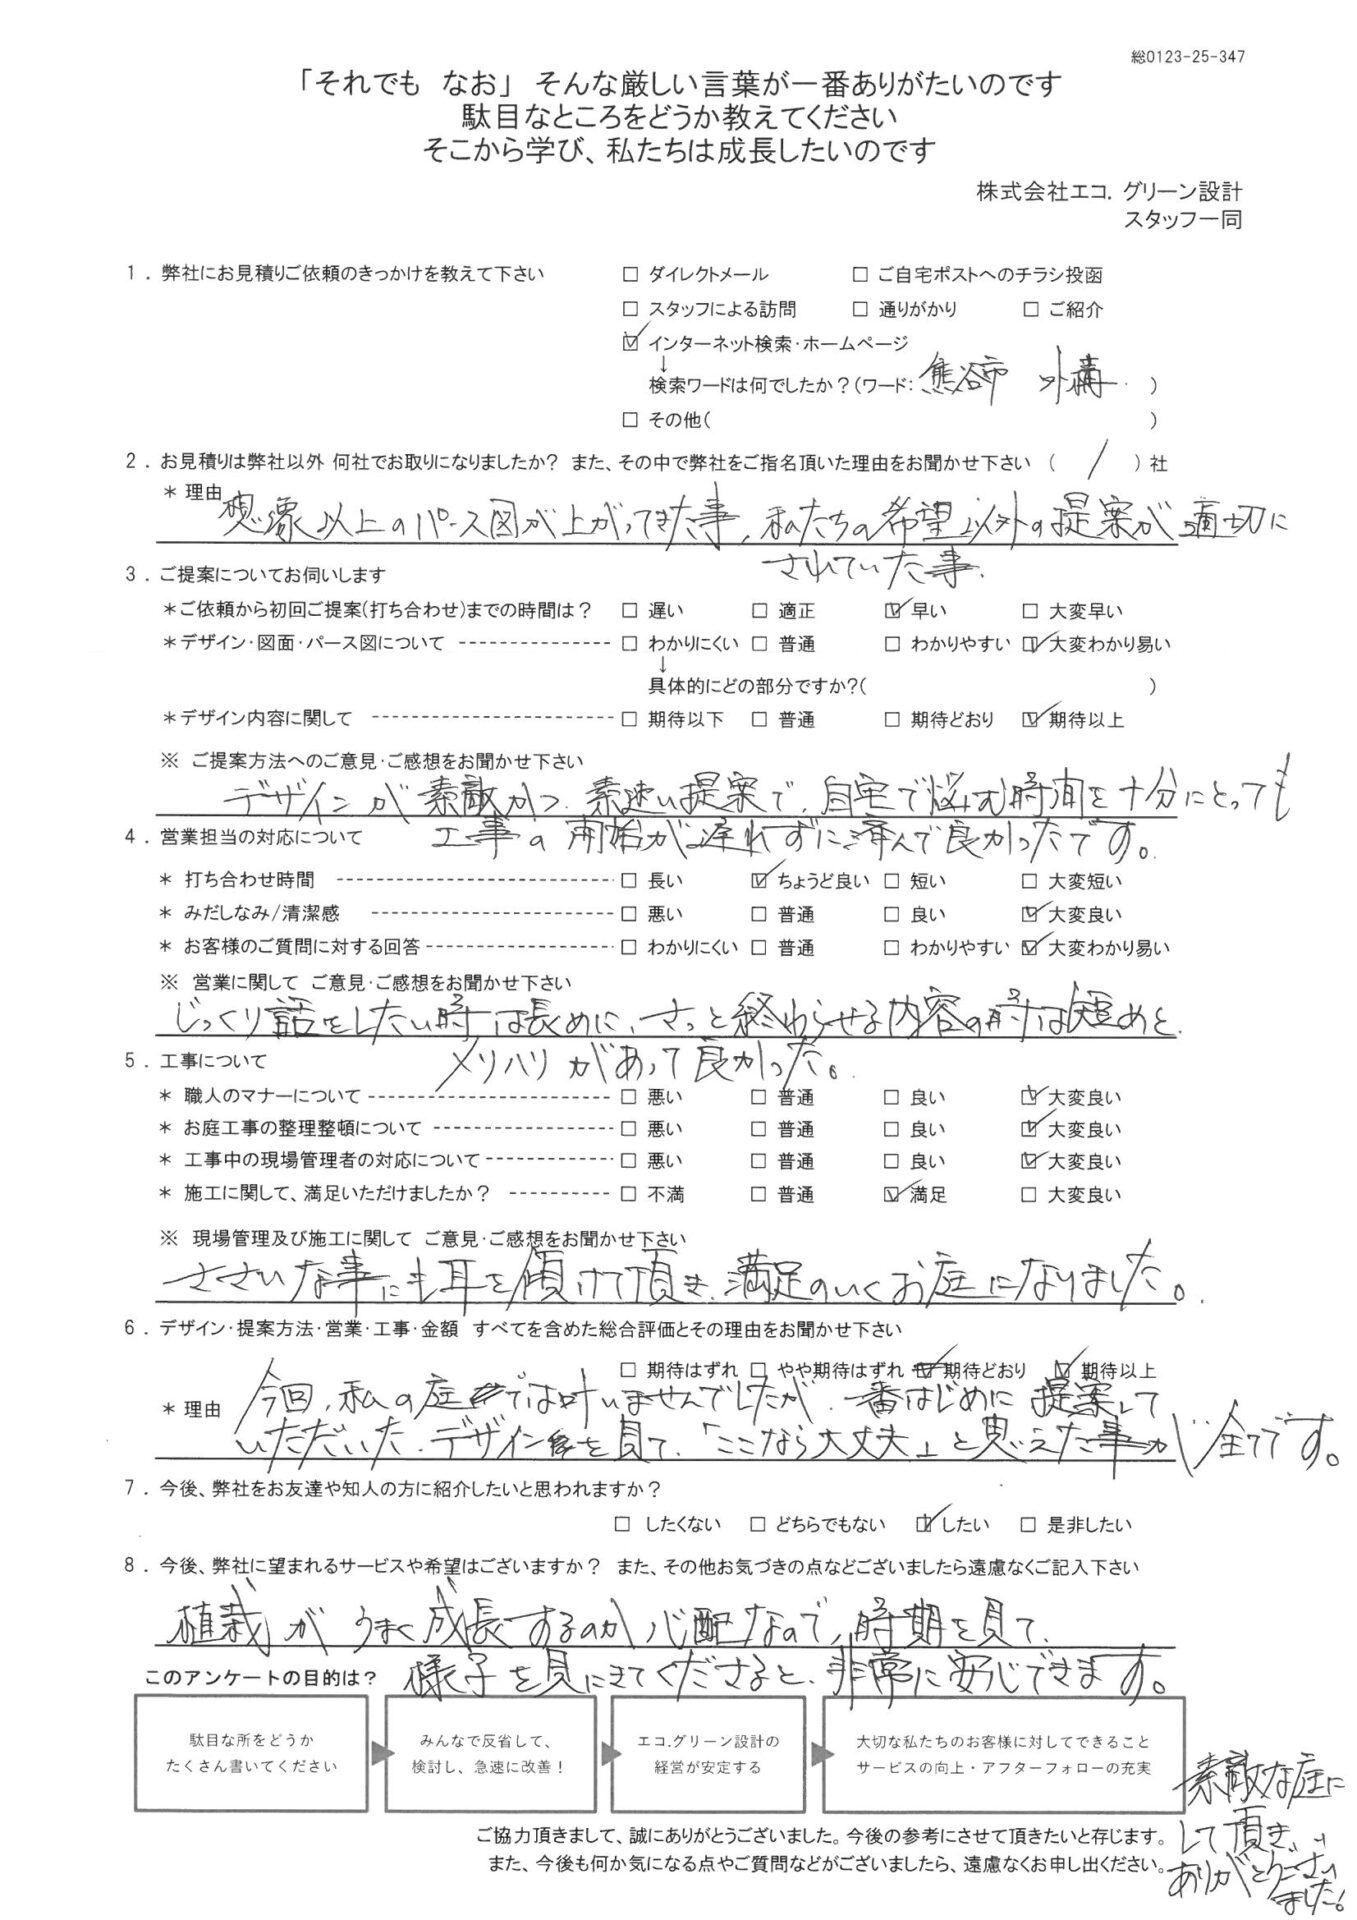 総0123-25-347
「それでも なお」 そんな厳しい言葉が一番ありがたいのです
駄目なところをどうか教えてください
そこから学び、私たちは成長したいのです
株式会社エコ.グリーン設計
スタッフ一同
1．弊社にお見積りご依頼のきっかけを教えて下さい □ ダイレクトメール □ ご自宅ポストへのチラシ投函
□ スタッフによる訪問 □ 通りがかり □ ご紹介
☑ インターネット検索・ホームページ
↓
検索ワードは何でしたか？(ワード: 熊谷市 外構 )
□ その他( )
2．お見積りは弊社以外 何社でお取りになりましたか？ また、その中で弊社をご指名頂いた理由をお聞かせ下さい ( / ) 社
＊ 理由 想像以上のパース図が上がってきた事、私たちの希望以外の提案が適切に
されていた事.
3．ご提案についてお伺いします
＊ご依頼から初回ご提案(打ち合わせ)までの時間は？ □ 遅い □ 適正 ☑ 早い □ 大変早い
＊デザイン・図面・パース図について □ わかりにくい □ 普通 □ わかりやすい ☑ 大変わかり易い
↓
具体的にどの部分ですか？( )
＊デザイン内容に関して □ 期待以下 □ 普通 □ 期待どおり ☑ 期待以上
※ ご提案方法へのご意見・ご感想をお聞かせ下さい
デザインが素敵かつ、素速い提案で、自宅で悩む時間を十分にとっても
4．営業担当の対応について 工事の開始が遅れずに済んで良かったです。
＊ 打ち合わせ時間 □ 長い ☑ ちょうど良い □ 短い □ 大変短い
＊ みだしなみ/清潔感 □ 悪い □ 普通 □ 良い ☑ 大変良い
＊ お客様のご質問に対する回答 □ わかりにくい □ 普通 □ わかりやすい ☑ 大変わかり易い
※ 営業に関して ご意見・ご感想をお聞かせ下さい
じっくり話をしたい時は長めに、さっと終わらせる内容の時は短めと、
5．工事について メリハリがあって良かった。
＊ 職人のマナーについて □ 悪い □ 普通 □ 良い ☑ 大変良い
＊ お庭工事の整理整頓について □ 悪い □ 普通 □ 良い ☑ 大変良い
＊ 工事中の現場管理者の対応について □ 悪い □ 普通 □ 良い ☑ 大変良い
＊ 施工に関して、満足いただけましたか？ □ 不満 □ 普通 ☑ 満足 □ 大変良い
※ 現場管理及び施工に関して ご意見・ご感想をお聞かせ下さい
ささいな事にも耳を傾けて頂き、満足のいくお庭になりました。
6．デザイン・提案方法・営業・工事・金額 すべてを含めた総合評価とその理由をお聞かせ下さい
□ 期待はずれ □ やや期待はずれ 期待どおり ☑ 期待以上
＊ 理由 今回、私の庭では叶いませんでしたが、一番はじめに提案して
いただいた、デザインを見て、「ここなら大丈夫」と思えた事が全てです。
7．今後、弊社をお友達や知人の方に紹介したいと思われますか？
□ したくない □ どちらでもない ☑ したい □ 是非したい
8．今後、弊社に望まれるサービスや希望はございますか？ また、その他お気づきの点などございましたら遠慮なくご記入下さい
植栽がうまく成長するのか心配なので、時期を見て、
このアンケートの目的は？ 様子を見にきてくださると、非常に安心できます。
駄目な所をどうか
たくさん書いてください
みんなで反省して、
検討し、急速に改善！
エコ.グリーン設計の
経営が安定する
大切な私たちのお客様に対してできること
サービスの向上・アフターフォローの充実
素敵な庭に
して頂き、
ありがとうござい
ました。
ご協力頂きまして、誠にありがとうございました。今後の参考にさせて頂きたいと存じます。
また、今後も何か気になる点やご質問などがございましたら、遠慮なくお申し出ください。